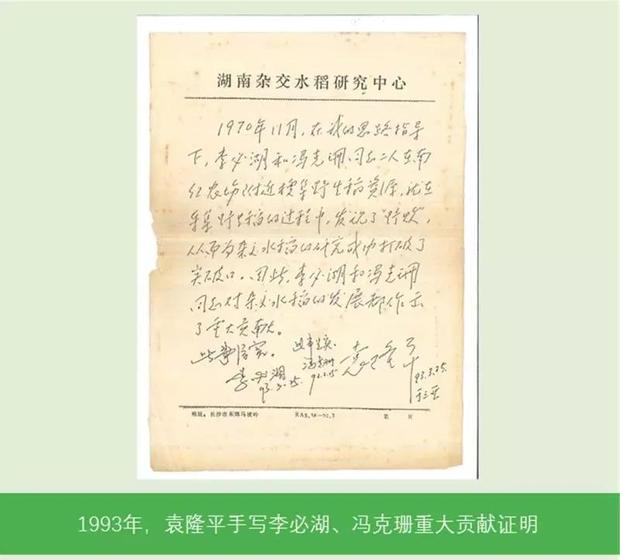 湖南杂交水稻研究中心
1970年11月，在我的思路指导
下，李必湖和冯克珊同志二人在南
红农场附近搜集野生稻资源，就在
采集野生稻的过程中，发现了"野败"，
从而为杂交水稻的研究成功打破了
突破口。因此，李必湖和冯克珊
同志对杂交水稻的发展都作出
了重大贡献。
此事属实。
李必湖
93.3.25.
此事是实
冯克珊
袁隆平
93.3.25
于三亚
地址：长沙市东郊马坡岭
第 页
1993年，袁隆平手写李必湖、冯克珊重大贡献证明